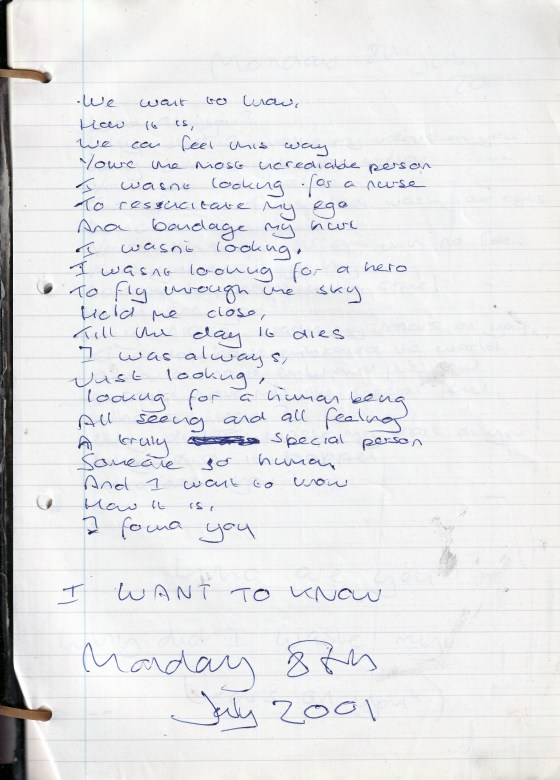 We want to know,
How it is,
We can feel this way
You're the most incrediable person
I wasnt looking for a nurse
To ressucitate my ego
And bandage my hurt
I wasnt looking,
I wasnt looking for a hero
To fly through the sky
Hold me close,
Till the day it dies
I was always,
Just looking,
looking for a human being
All seeing and all feeling
A truly special person
Someone so human,
And I want to know
How it is,
I found you
I WANT TO KNOW
Monday 8th
July 2001